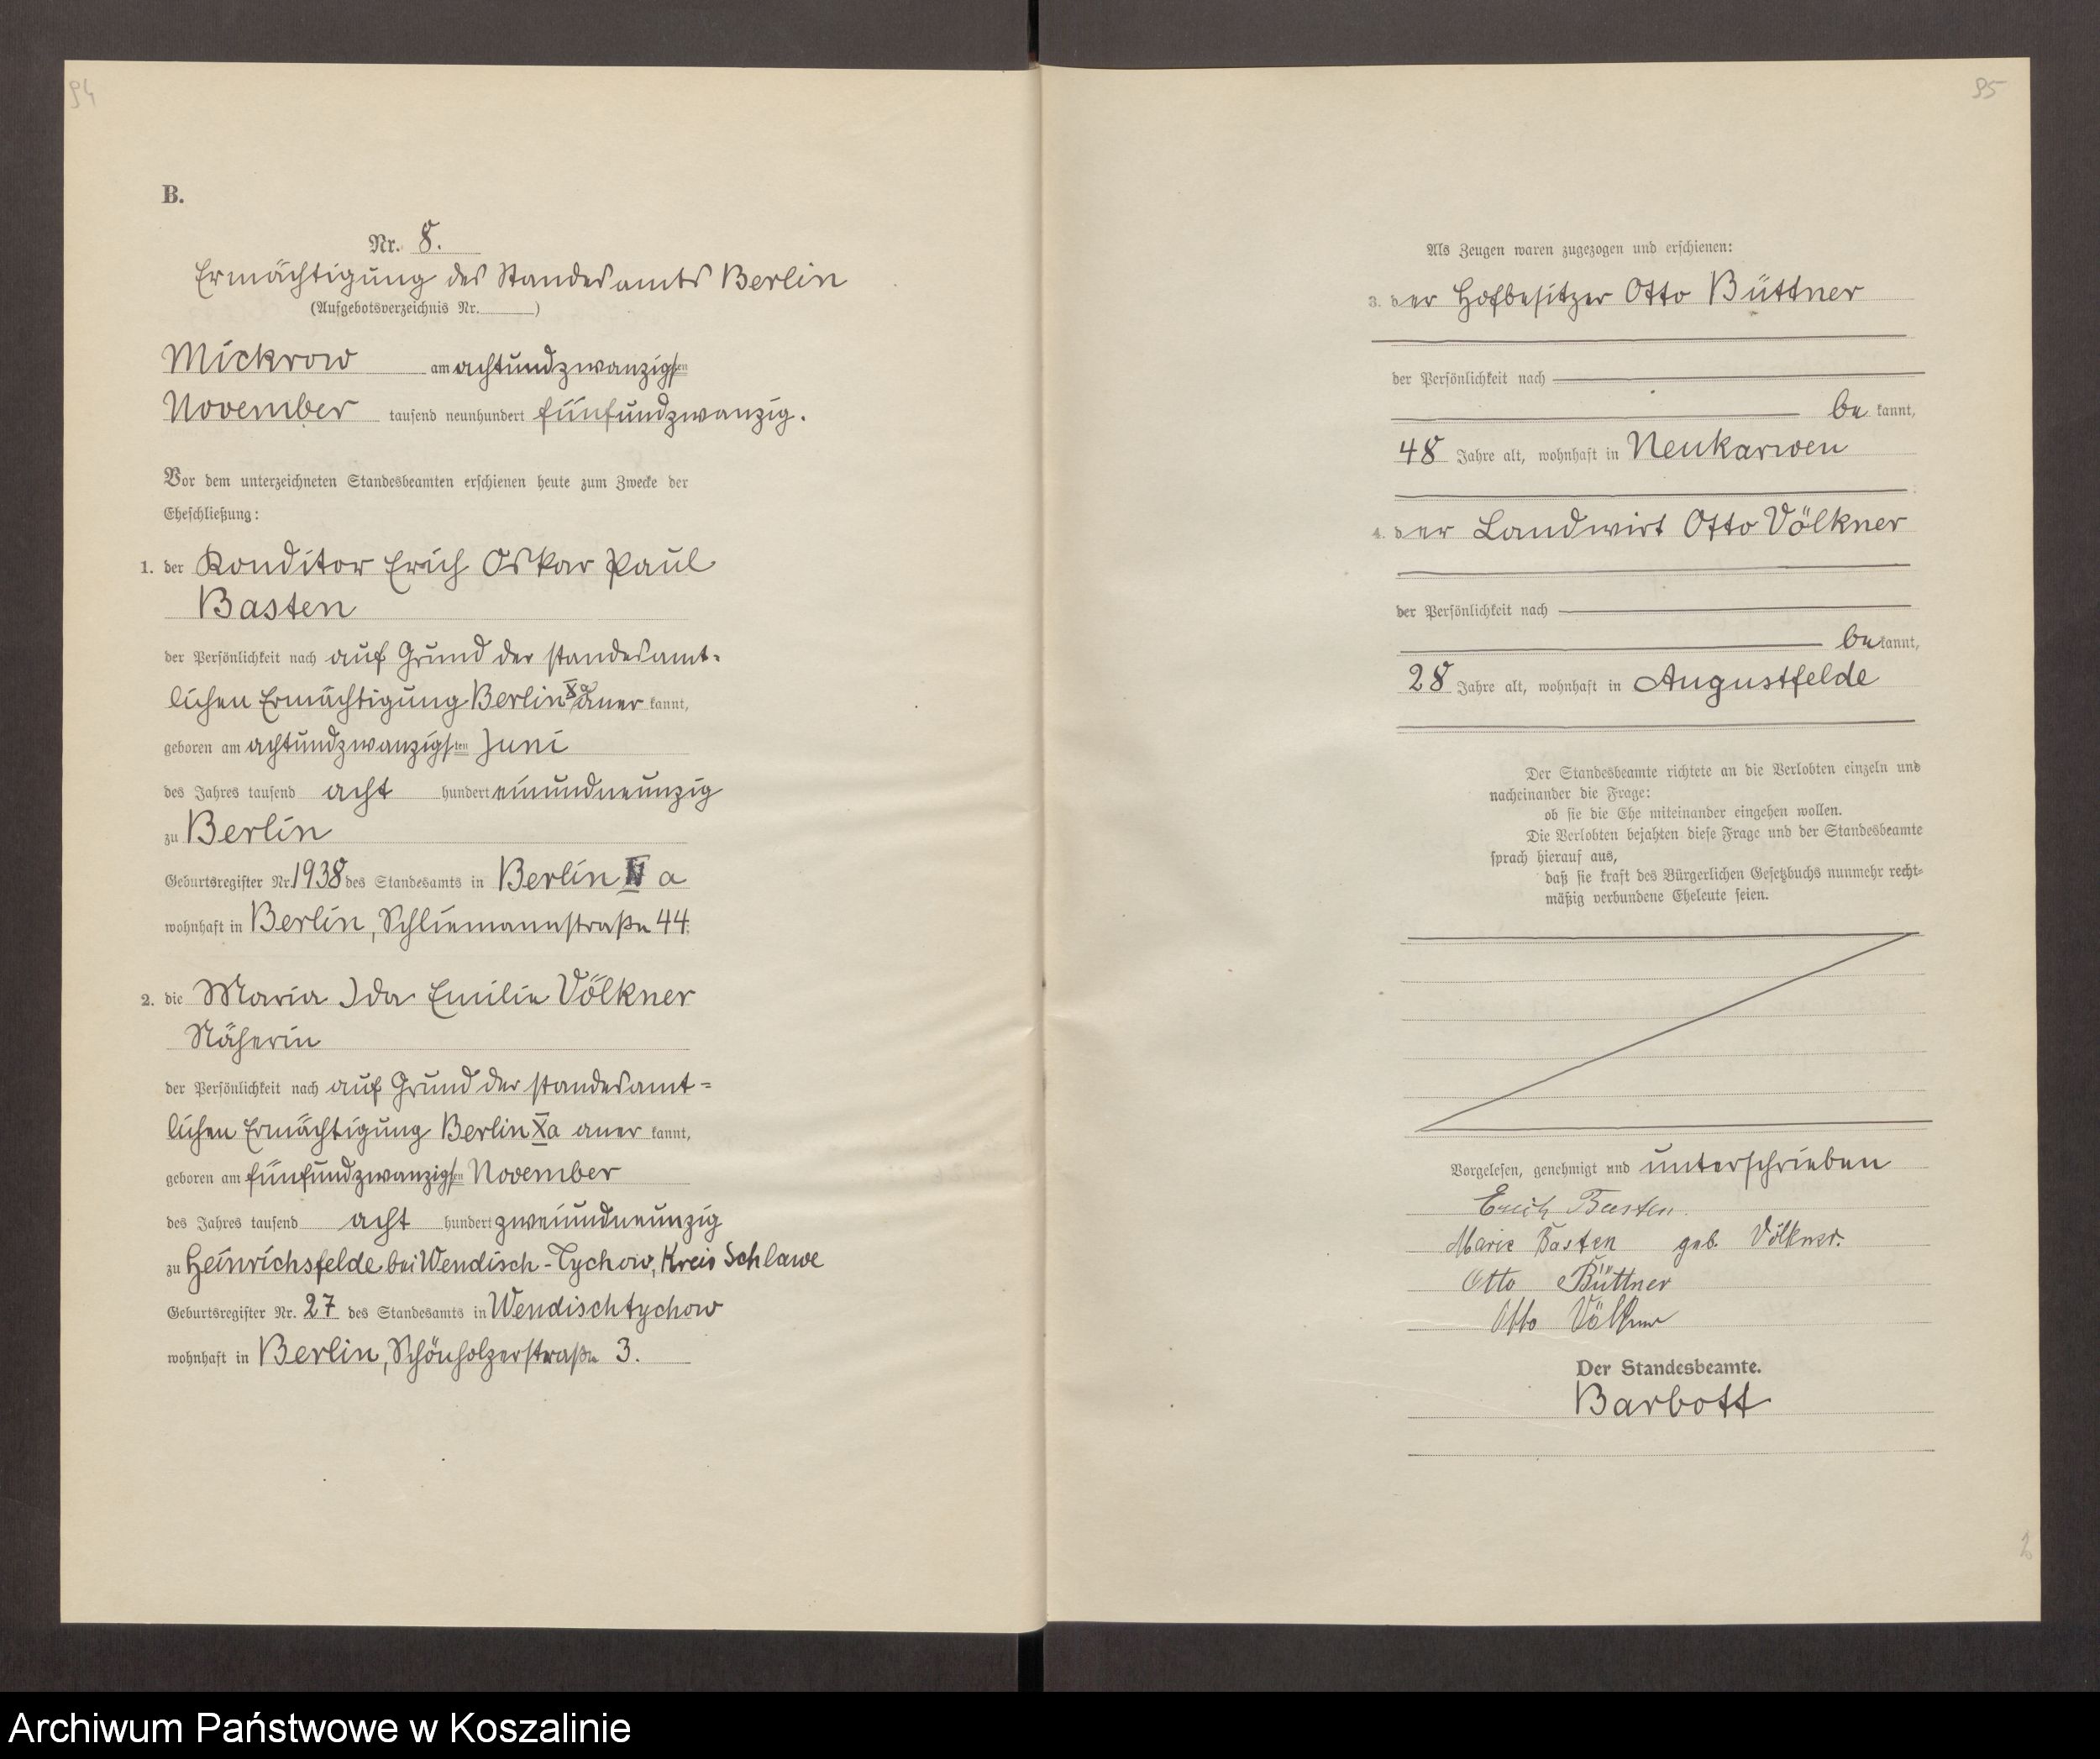 94
B.
Nr. 8.
Ermächtigung des Standesamts Berlin
(Aufgebotsverzeichnis Nr. )
Mickrow am achtundzwanzigsten
November tausend neunhundert fünfundzwanzig.
Vor dem unterzeichneten Standesbeamten erschienen heute zum Zwecke der
Eheschließung:
1. der Konditor Erich Oskar Paul
Basten
der Persönlichkeit nach auf Grund der standesamt-
lichen Ermächtigung Berlin Xa aner kannt,
geboren am achtundzwanzigsten Juni
des Jahres tausend acht hundert einundneunzig
zu Berlin
Geburtsregister Nr. 1938 des Standesamts in Berlin a
wohnhaft in Berlin, Schliemannstraße 44.
2. die Maria Ida Emilie Völkner
Näherin
der Persönlichkeit nach auf Grund der standesamt-
lichen Ermächtigung Berlin Xa aner kannt,
geboren am fünfundzwanzigsten November
des Jahres tausend acht hundert zweiundneunzig
zu Heinrichsfelde bei Wendisch-Tychow, Kreis Schlawe
Geburtsregister Nr. 27 des Standesamts in Wendischtychow
wohnhaft in Berlin, Schönholzerstraße 3.
95
Als Zeugen waren zugezogen und erschienen:
3. der Hofbesitzer Otto Büttner
der Persönlichkeit nach
be kannt,
48 Jahre alt, wohnhaft in Neukarwen
4. der Landwirt Otto Völkner
der Persönlichkeit nach
be kannt,
28 Jahre alt, wohnhaft in Augustfelde
Der Standesbeamte richtete an die Verlobten einzeln und
nacheinander die Frage:
ob sie die Ehe miteinander eingehen wollen.
Die Verlobten bejahten diese Frage und der Standesbeamte
sprach hierauf aus,
daß sie kraft des Bürgerlichen Gesetzbuchs nunmehr recht-
mäßig verbundene Eheleute seien.
Vorgelesen, genehmigt und unterschrieben
Erich Basten.
Marie Basten geb. Völkner.
Otto Büttner
Otto Völkner
Der Standesbeamte.
Barbott
Archiwum Państwowe w Koszalinie